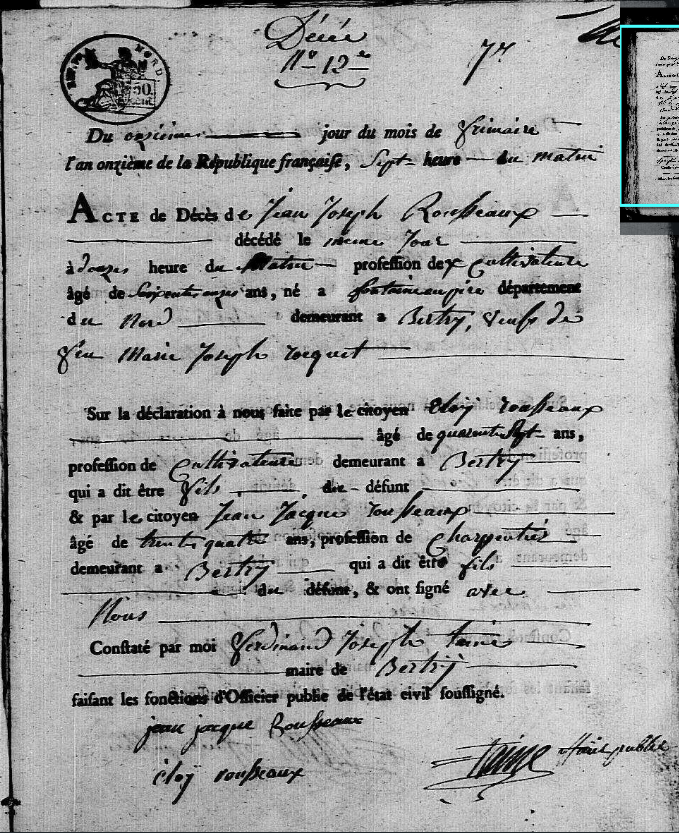 Décée
N° 12
7
NORD
50
Du onzieme jour du mois de frimaire
l'an onzième de la République françaiſe, Sept heure du matin
ACTE de Décès de Jean Joseph Rousseaux
décédé le meme Jour
à douzes heure du Matin profession de Cultivateur
âgé de ans, né a fontaineaupire département
du Nord demeurant a Bertry, veuf de
feu Marie Joseph tocquet
Sur la déclaration à nous faite par le citoyen Eloy rousseaux
âgé de quarente Sept ans,
profession de Cultivateur demeurant a Bertry
qui a dit être fils du défunt
& par le citoyen Jean Jacque rousseaux
âgé de trente quatre ans, profession de Charpentier
demeurant a Bertry qui a dit être fils
du défunt, & ont signé avec
Nous
Conſtaté par moi Ferdinand Joseph taine
maire de Bertry
faiſant les fonctions d'Officier public de l'état civil ſouſſigné.
jean jacque Rousseaux
éloÿ rousseaux
taine publie